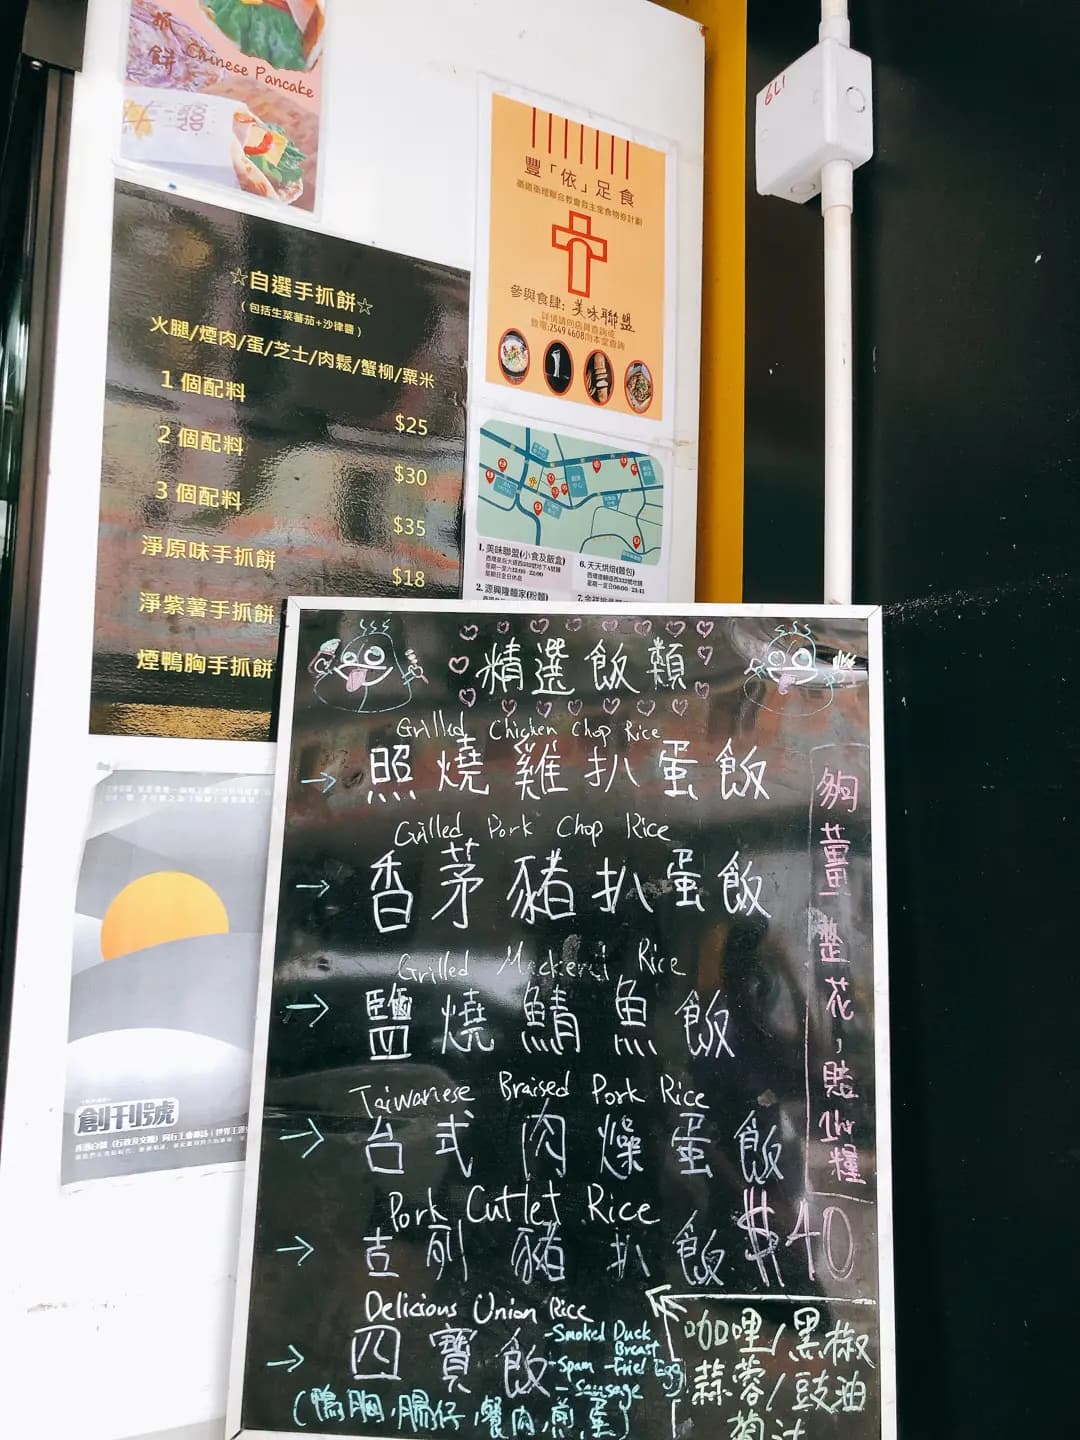 抓
餅
Chinese Pancake
☆自選手抓餅☆
(包括生菜蕃茄+沙律醬)
火腿/煙肉/蛋/芝士/肉鬆/蟹柳/粟米
1個配料 $25
2個配料 $30
3個配料 $35
淨原味手抓餅 $18
淨紫薯手抓餅
煙鴨胸手抓餅
豐「依」足食
參與食肆: 美味聯盟
詳情請向店員查詢或
致電:2549 4608向本堂查詢
1. 美味聯盟(小食及飯盒)
星期日全日休息
2. 源興隆麵家(粉麵)
6. 天天烘焙(麵包)
創刊號
6L1
精選飯類
Grilled Chicken Chop Rice
→ 照燒雞扒蛋飯
Grilled Pork Chop Rice
→ 香茅豬扒蛋飯
Grilled Mackerel Rice
→ 鹽燒鯖魚飯
Taiwanese Braised Pork Rice
→ 台式肉燥蛋飯
Pork Cutlet Rice
→ 吉列豬扒飯
Delicious Union Rice
→ 四寶飯
-Smoked Duck
Breast
-Spam -Fried Egg
-Sausage
(鴨胸,腸仔,餐肉,煎蛋)
夠薑整花,賠1hr糧
$40
咖哩/黑椒
蒜蓉/豉油